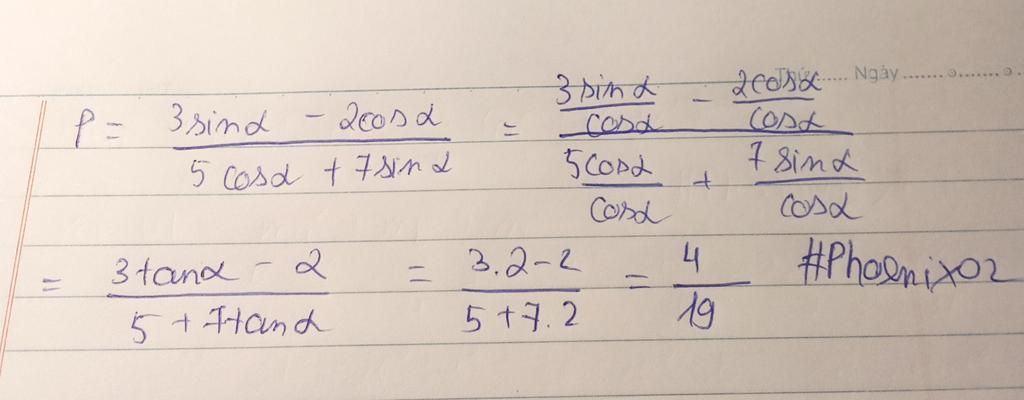 Thứ...... Ngày.......
P = (3sinα - 2cosα)/(5cosα + 7sinα) = (3sinα/cosα - 2cosα/cosα)/(5cosα/cosα + 7sinα/cosα)
= (3tanα - 2)/(5 + 7tanα) = (3.2-2)/(5+7.2) = 4/19 #Phoenix02